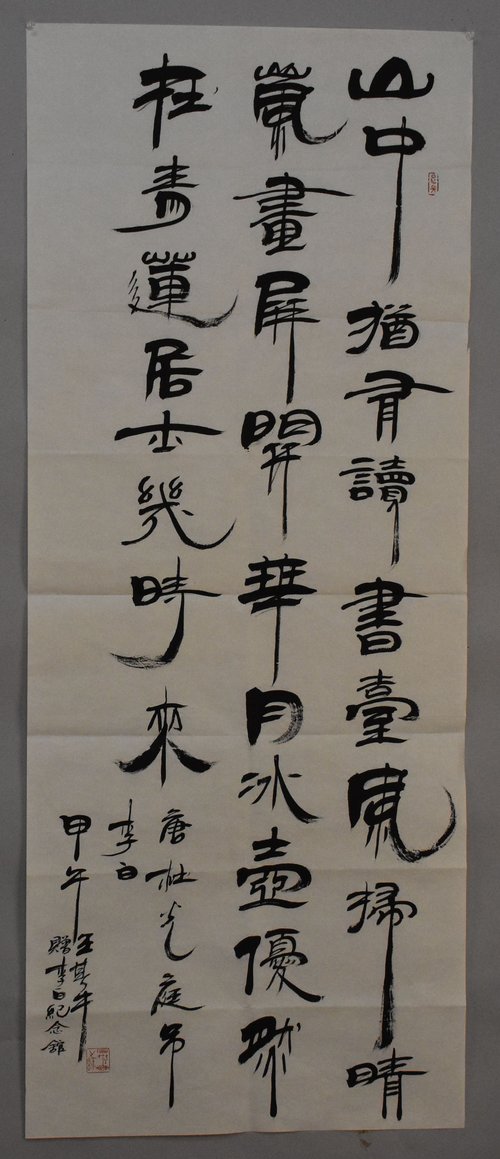 山中猶有讀書臺風掃晴
嵐畫屏開華月冰壺優然
在青蓮居士幾時來
唐杜光庭吊
李白
甲午王
贈李白紀念館